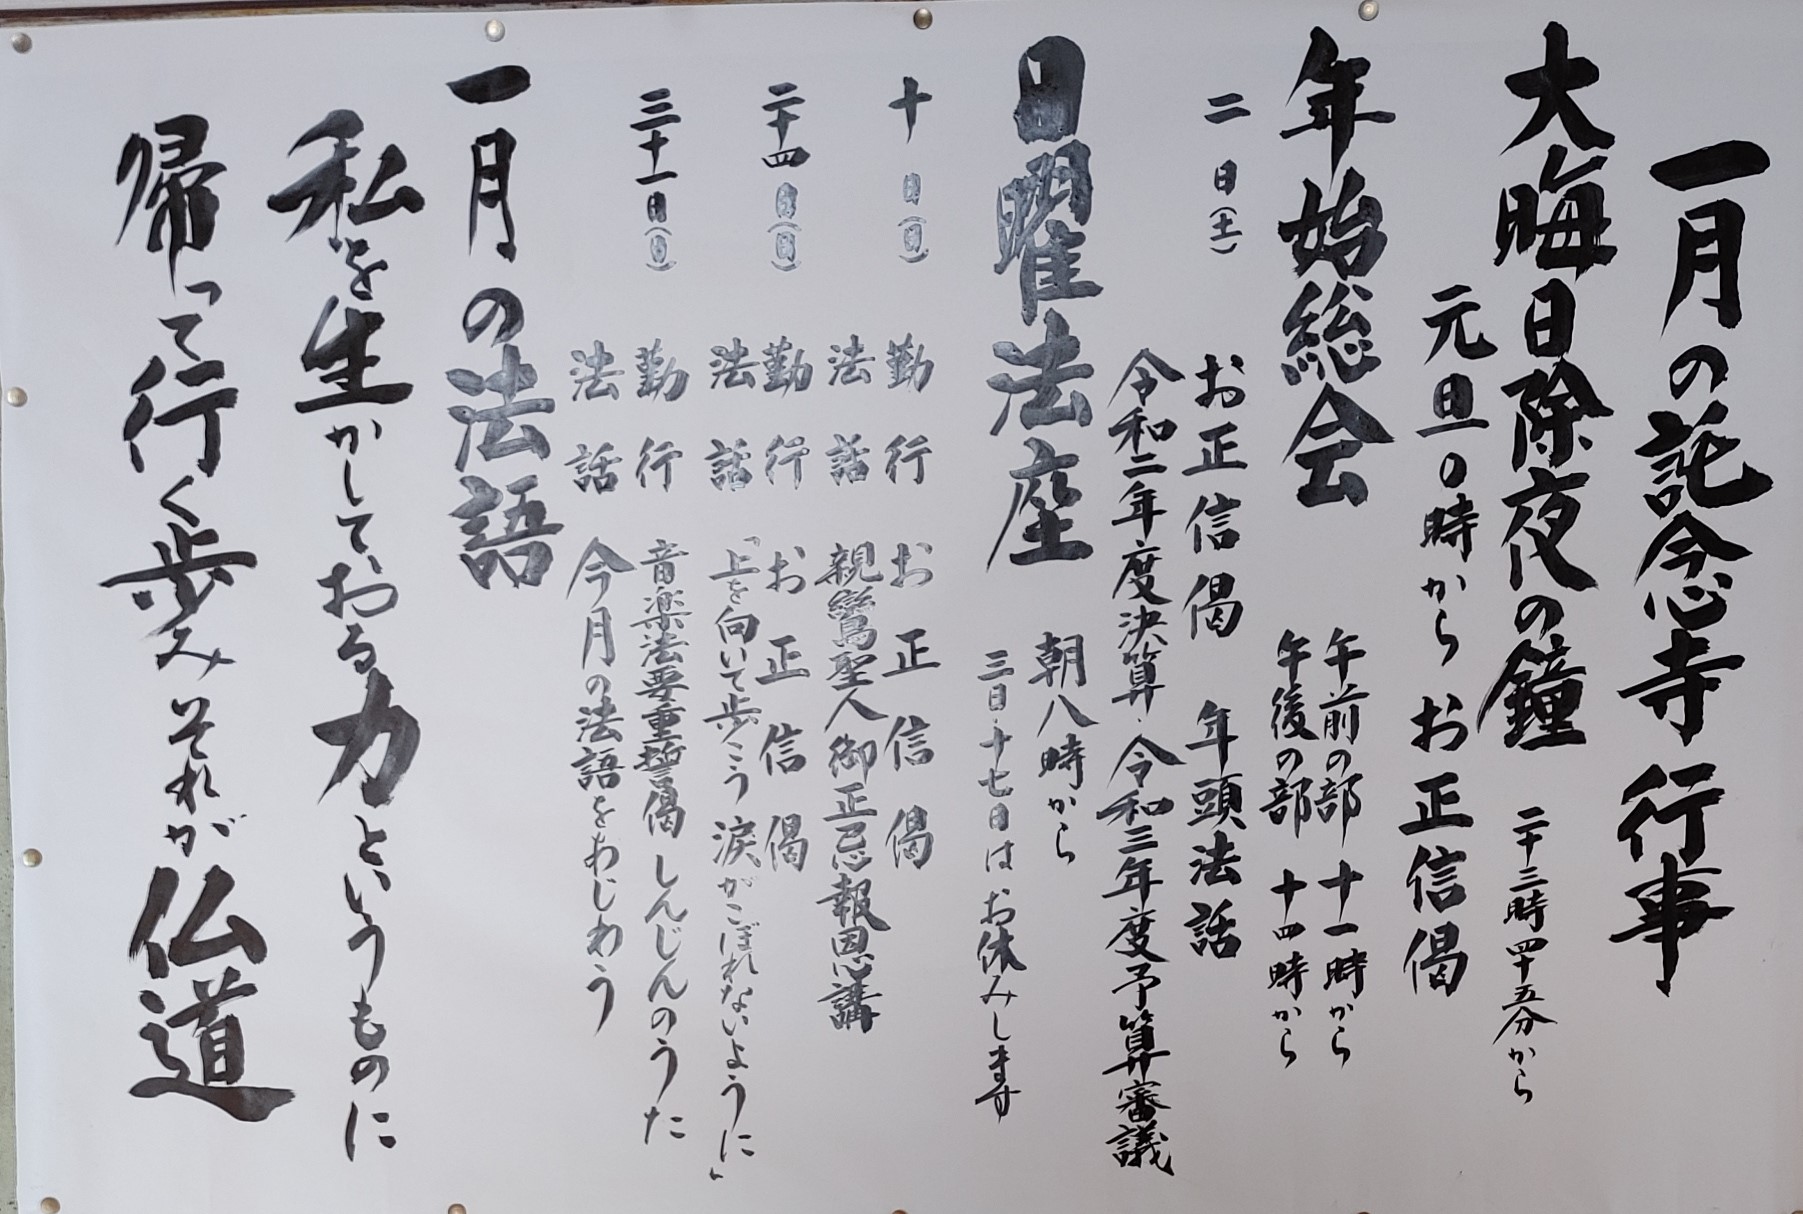 一月の託念寺行事
大晦日除夜の鐘 二十三時四十五分から
元旦0時から お正信偈
年始総会 午前の部 十一時から
午後の部 十四時から
二日(土) お正信偈 年頭法話
令和二年度決算・令和三年度予算審議
日曜法座 朝八時から
三日・十七日はお休みします
十日(日) 勤行 お正信偈
法話 親鸞聖人御正忌報恩講
二十四日(日) 勤行 お正信偈
法話 「上を向いて歩こう 涙がこぼれないように」
三十一日(日) 勤行 音楽法要重誓偈 しんじんのうた
法話 今月の法語をあじわう
一月の法語
私を生かしておる力というものに
帰って行く歩みそれが仏道